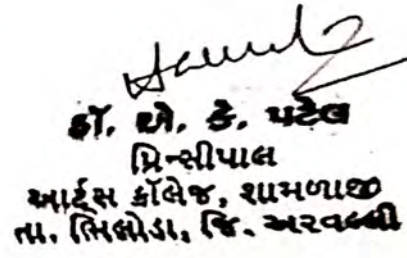 ડૉ. એ. કે. પટેલ
પ્રિન્સીપાલ
આર્ટ્સ કૉલેજ, શામળાજી
તા. ભિલોડા, જિ. અરવલ્લી